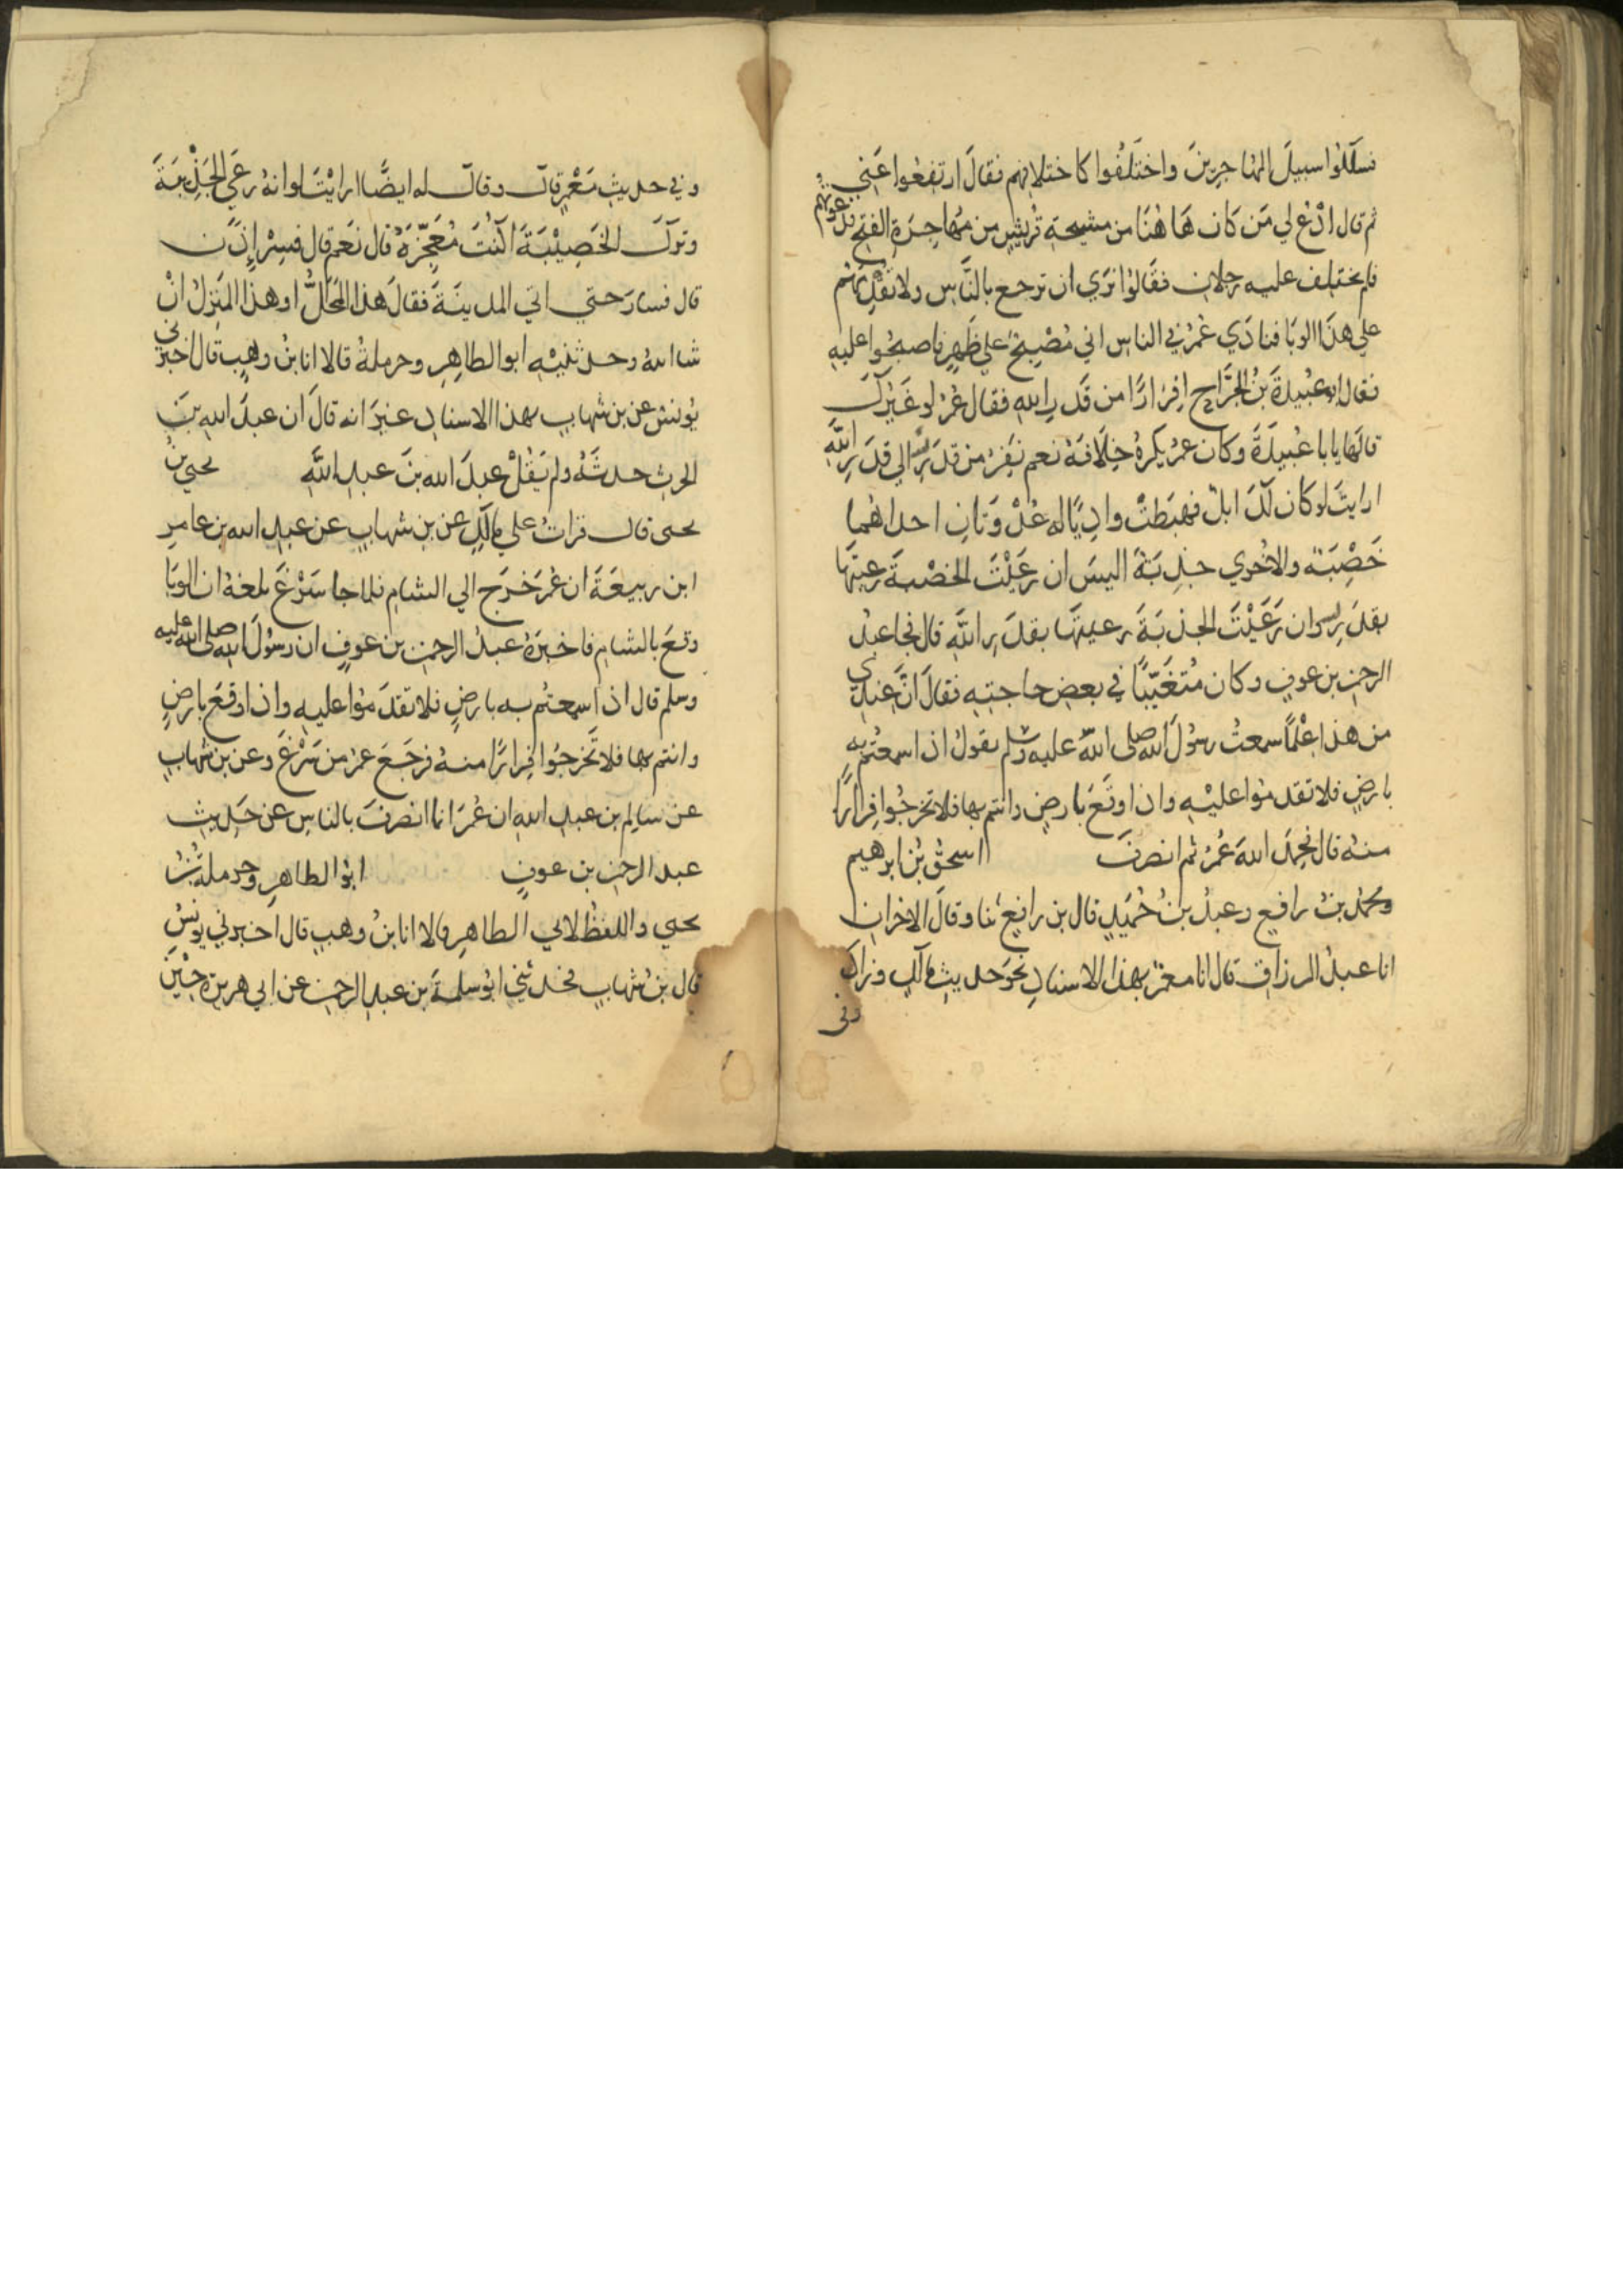 فسلكوا سبيلَ المهاجرينَ واختَلَفُوا كاختلافهم فقالَ ارتفعُوا عَنِّي
ثم قال ادْعُ لي مَن كَان هَاهُنَا من مشيخةِ قُريشٍ من مُهاجِرَةِ الفتحِ فدعوتُهم
فلم يختلِف عليه رجلان فقَالوُا نَرَي ان ترجع بالنَّاسِ ولا تقْدِمَهُم
علي هذَا الوبَا فنادَي عُمرُ في الناسِ اني مُصْبِحٌ علي ظَهرٍ فاصبحُوا عليهِ
فقال ابو عُبيدةَ بنُ الجَرَّاحِ افِرَارًا من قَدَرِ اللهِ فقال عُمرُ لو غَيرُكَ
قالَها يا با عُبيدَةَ وكان عمرُ يكرهُ خِلَافَهُ نعم نَفِرُّ من قدَرِ اللهِ الي قدَرِ اللهِ
ارايتَ لو كان لَكَ ابلٌ فهبَطَتْ وادِيًا له عُدْوَتانِ احداهُما
خَصْبَةٌ والاخْري جَدْبَةٌ اليسَ ان رَعَيْتَ الخصْبةَ رعيتَهَا
بقَدَرِ اللهِ وان رَعَيْتَ الجدْبَةَ رعيتَها بقدَرِ اللهِ قال فجا عبدُ
الرحمن بن عوفٍ وكان مُتَغَيّبًا في بعضِ حاجتِهِ فقالَ انَّ عِندِي
من هذا عِلْمًا سمعتُ رسُولَ اللهِ صلى اللهُ عليه وسلم يقولُ اذا سمعتُم به
بارضٍ فلا تقدمُوا عليْهِ واذا وقَعَ بارضٍ وانتم بها فلا تخرجُوا فِرارًا
منهُ قال فحمِدَ اللهَ عُمرُ ثم انصرفَ اسحقُ بْنُ ابرهيم
ومحمدُ بنُ رافعٍ وعبدُ بنُ حُميدٍ قال بن رافعٍ ثنا وقالَ الاخران
انا عبدُ الرزاقِ قال انا معمرٌ بهذا الاسنادِ نحوَ حديثِ مالكٍ وزادَ
وفي
وفي حديثِ مَعْمرٍ قال وقال له ايضًا ارايْتَ لو انهُ رعَي الجَدْبَةَ
وتركَ الخَصْبَةَ اكُنْتَ مُعَجِّزَهُ قال نَعم قال فسِرْ اذًن
قال فسارَ حتي اتي المدينَةَ فقالَ هذا المَحَلُّ او هذا المنزلُ انْ
شا اللهُ وحدثنيْهِ ابو الطاهِرِ وحرملةُ قالا انا بنُ وهبٍ قال اخبرني
يُونسُ عن بن شهابٍ بهذا الاسنادِ غيرَ انه قالَ ان عبدَ اللهِ بنَ
الحرثِ حدثَهُ ولم يَقُلْ عبدَ اللهِ بنَ عبدِ اللهِ يحيي بنُ
يحيى قال قراتُ علي مالكٍ عن بن شهابٍ عن عبدِ اللهِ بن عامرِ
ابن ربيعَةَ ان عُمَرَ خَرَج الي الشامِ فلما جا سَرْغَ بلغهُ ان الوبَا
وقعَ بالشامِ فاخبرَهُ عبدُ الرحمن بن عوفٍ ان رسُولَ اللهِ صلى الله عليه
وسلم قال اذا سمعتُم به بارضٍ فلا تقدَمُوا عليهِ واذا وقعَ بارضٍ
وانتم بها فلا تَخرجُوا فِرارًا منهُ فرجَعَ عمرُ من سَرْغَ وعن بن شهابٍ
عن سالِم بن عبدِ اللهِ ان عُمَرَ انما انصرفَ بالناسِ عن حَديثِ
عبد الرحمن بن عوفٍ ابوُ الطاهرِ وحرملةُ بنُ
يحيي واللفظُ لابي الطاهرِ قالا انا بنُ وهبٍ قال اخبرني يونسُ
قال بن شهابٍ فحدثني ابوُ سلمةَ بن عبدِ الرحمن عن ابي هريرة حِيْنَ